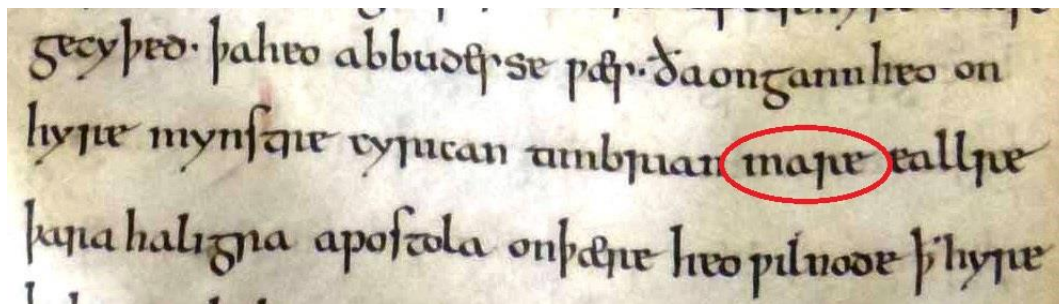 gecyþed· þaheo abbudesse ƿæs· ðaongann heo on
hyre mynstre cyrican timbrian inare eallre
þara haligra apostola onþære heo ƿilnode ꝥ hyre